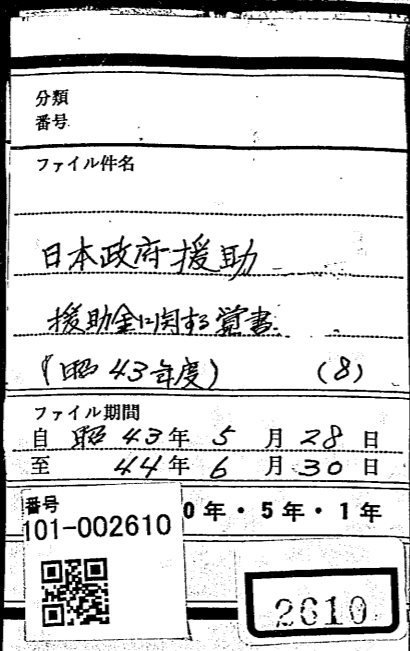 分類
番号
ファイル件名
日本政府援助
援助金に関する覚書
(昭43年度) (8)
ファイル期間
自 昭43年 5月28日
至 44年 6月30日
番号
101-002610
0年・5年・1年
2610